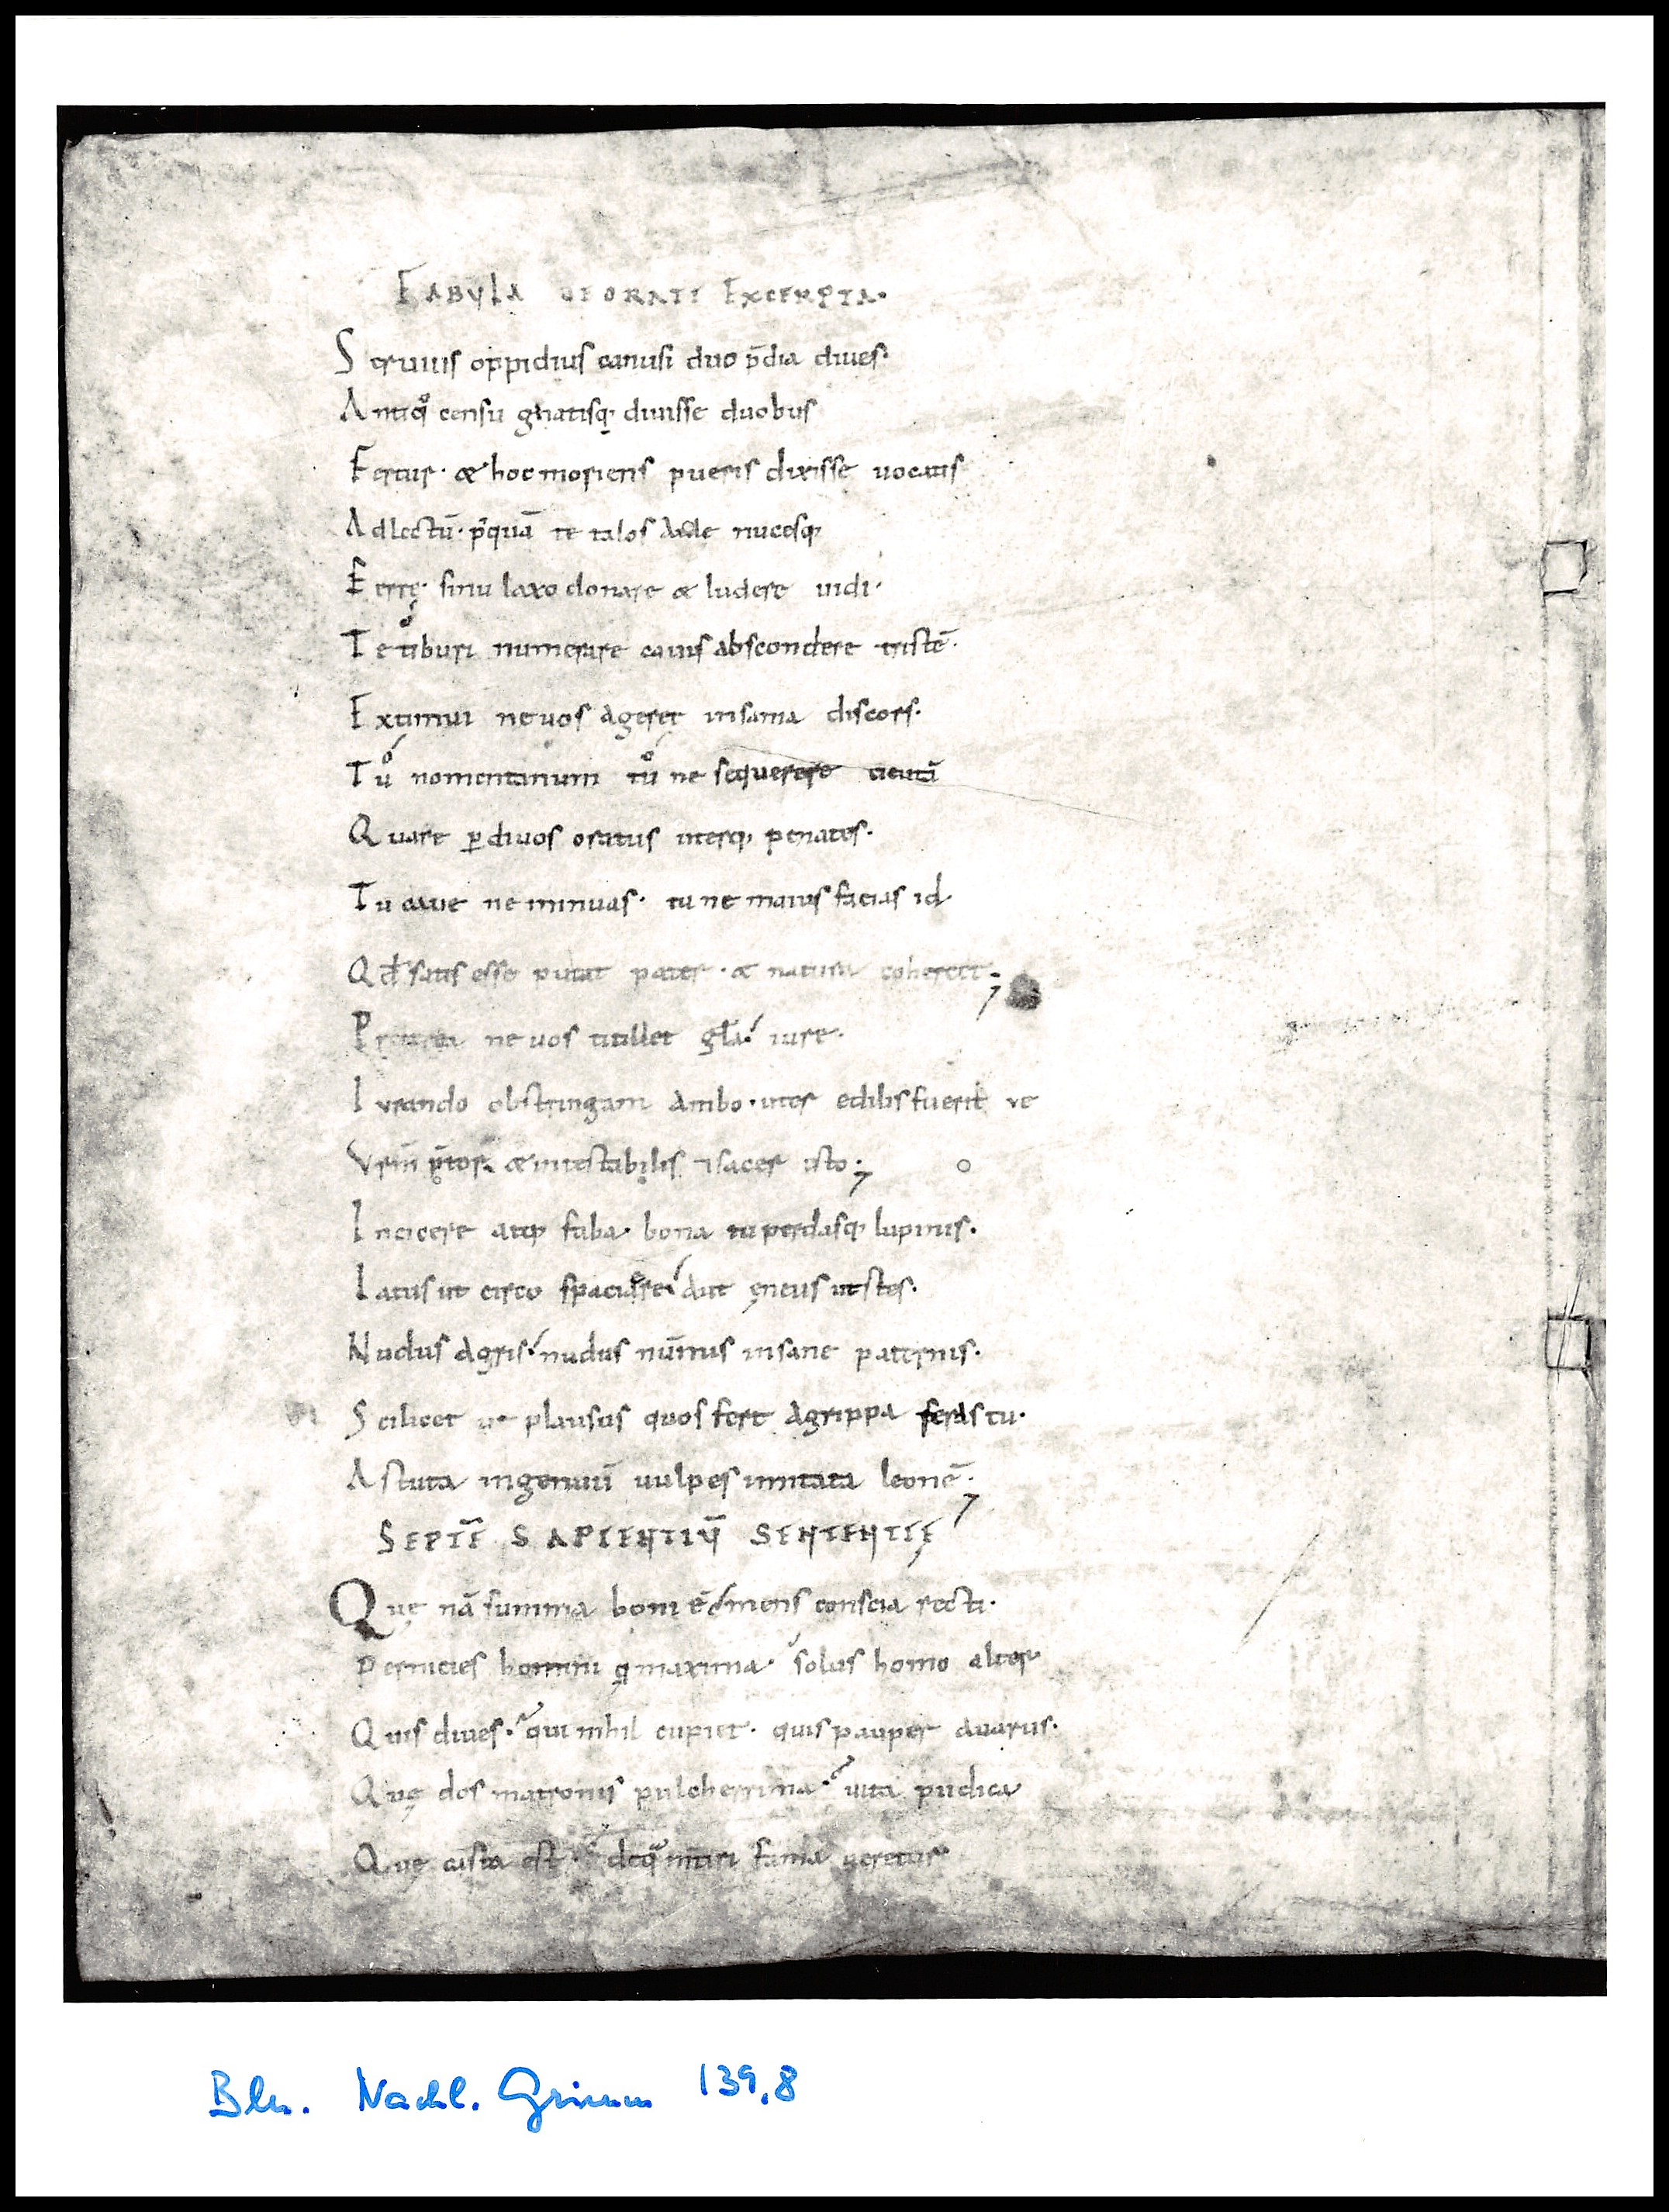 FABULA OFORATI EXCERPTA.
Seruius oppidius canusi duo p̄dia diues.
Antiqͦ censu gnatisq; diuisse duobus
Fertur. & hoc moriens pueris dixisse uocatis
Ad lectū. p̄quā te talos Aule nucesq;
Ferre. sinu laxo donare & ludere uidi.
Te tiburi numerare cauis abscondere tristē.
Extimui ne uos ageret insania discors.
Tu nomentanum tu ne sequerere cicutā
Quare ꝑ diuos oratus uterq; penates.
Tu caue ne minuas. tu ne maius facias id.
Qđ satis esse putat pater. & natura coherc&;
Preterea ne uos titillet gl̄a. iure.
Iurando obstringam ambo. uter edilis fuerit ue
Vr̄m p̄tor. & intestabilis ⁊ sacer esto;
In cicere atq; faba. bona tu perdasq; lupinis.
Latus ut circo spaciere. aut ęneus ut stes.
Nudus agris. nudus nūmis insane paternis.
Scilicet ut plausus quos fert Agrippa feras tu.
Astuta ingenuū uulpes imitata leonē;
SEPTĒ SAPIENTIŪ SENTENTIĘ
Quę nā summa boni ē mens conscia recti.
Pernicies homini q̄ maxima solus homo alter
Quis diues. qui nihil cupiet. quis pauper auarus.
Quę dos matronis pulcherrima. uita pudica
Quę casta est. de qͣ mtiri fama ueretur
Bln. Nachl. Grimm 139,8